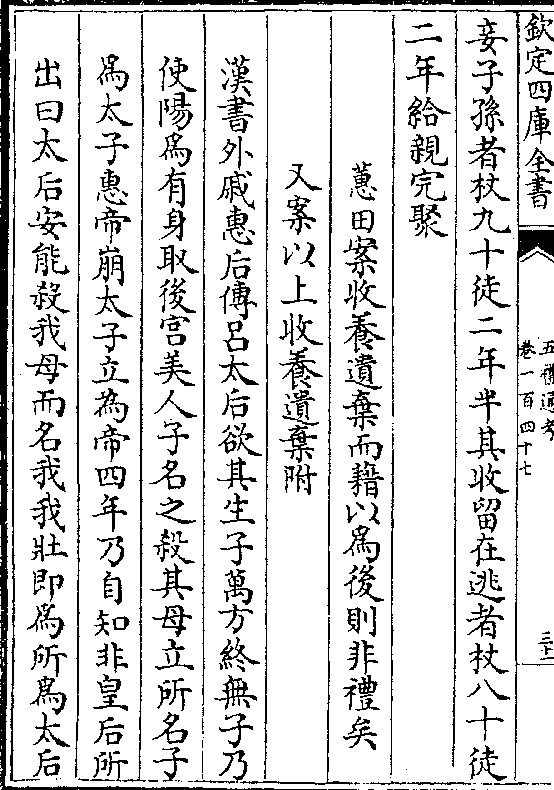 欽定四庫全書
五禮通考
卷一百四十七
三十二
妾子孫者杖九十徒二年半其收留在逃者杖八十徒
二年給親完聚
蕙田案收養遺棄而藉以為後則非禮矣
又案以上收養遺棄附
漢書外戚惠后傳吕太后欲其生子萬方終無子乃
使陽為有身取後宫美人子名之殺其母立所名子
為太子惠帝崩太子立為帝四年乃自知非皇后所
出曰太后安能殺我母而名我我壯即為所為太后